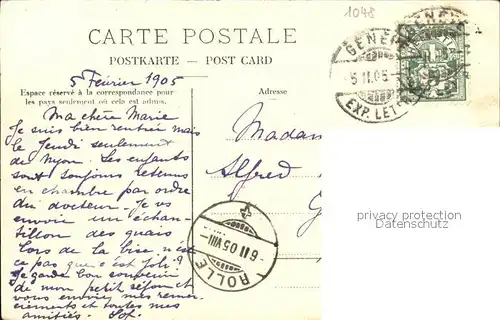 1048
CARTE POSTALE
POSTKARTE — POST CARD
5 Février 1905
Espace réservé à la correspondance pour
les pays seulement où cela est admis.
Adresse
GENÈVE
5 II 05
EXP. LETTR.
Ma chère Marie
Je suis bien rentrée mais
le Jeudi seulement
de Nyon. Les enfants
sont toujours retenus
en chambre par ordre
du docteur. Je vs
envoie un échan-
tillon des quais
lors de la bise n'est
ce pas que c'est joli?
Je garde bon souvenir
de mon petit séjour et
vous envoie mes remer-
ciements et toutes mes
amitiés.
Madam
Alfred
G
ROLLE
6 II 05 VIII
privacy protection
Datenschutz